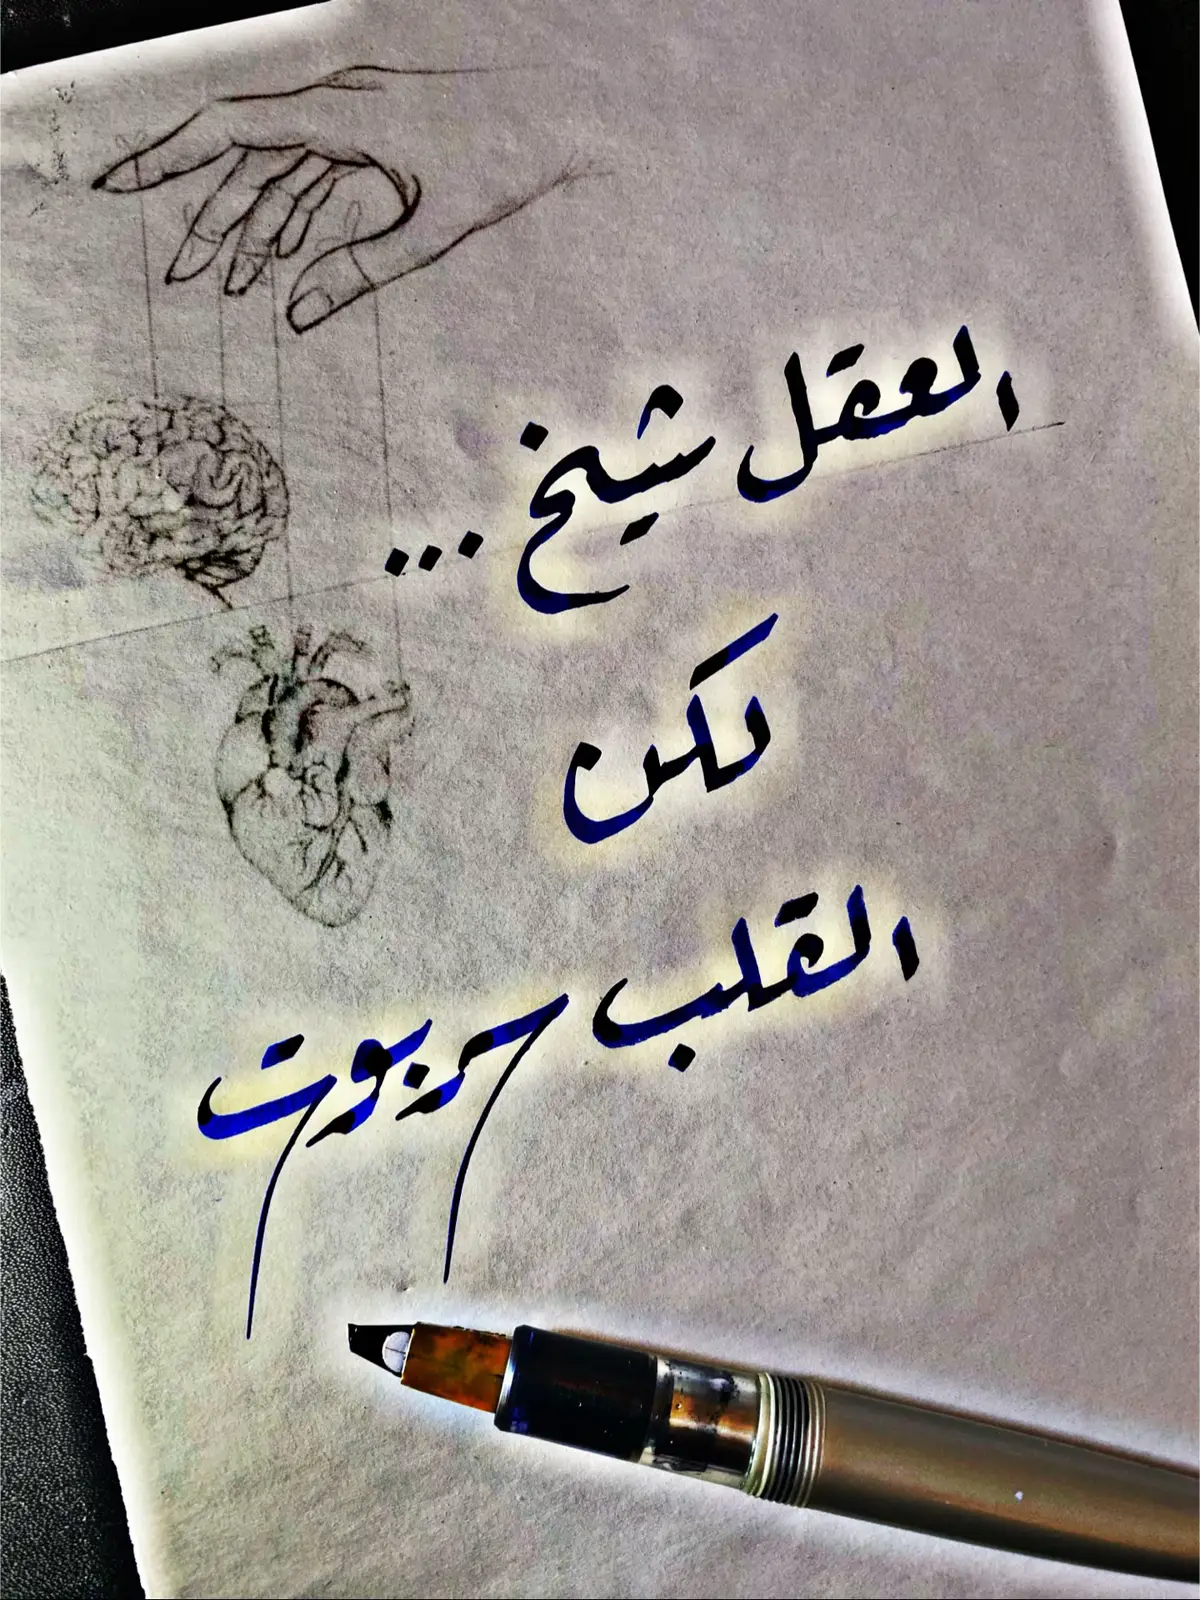 العقل شيخ...
لكن
القلب سربوت